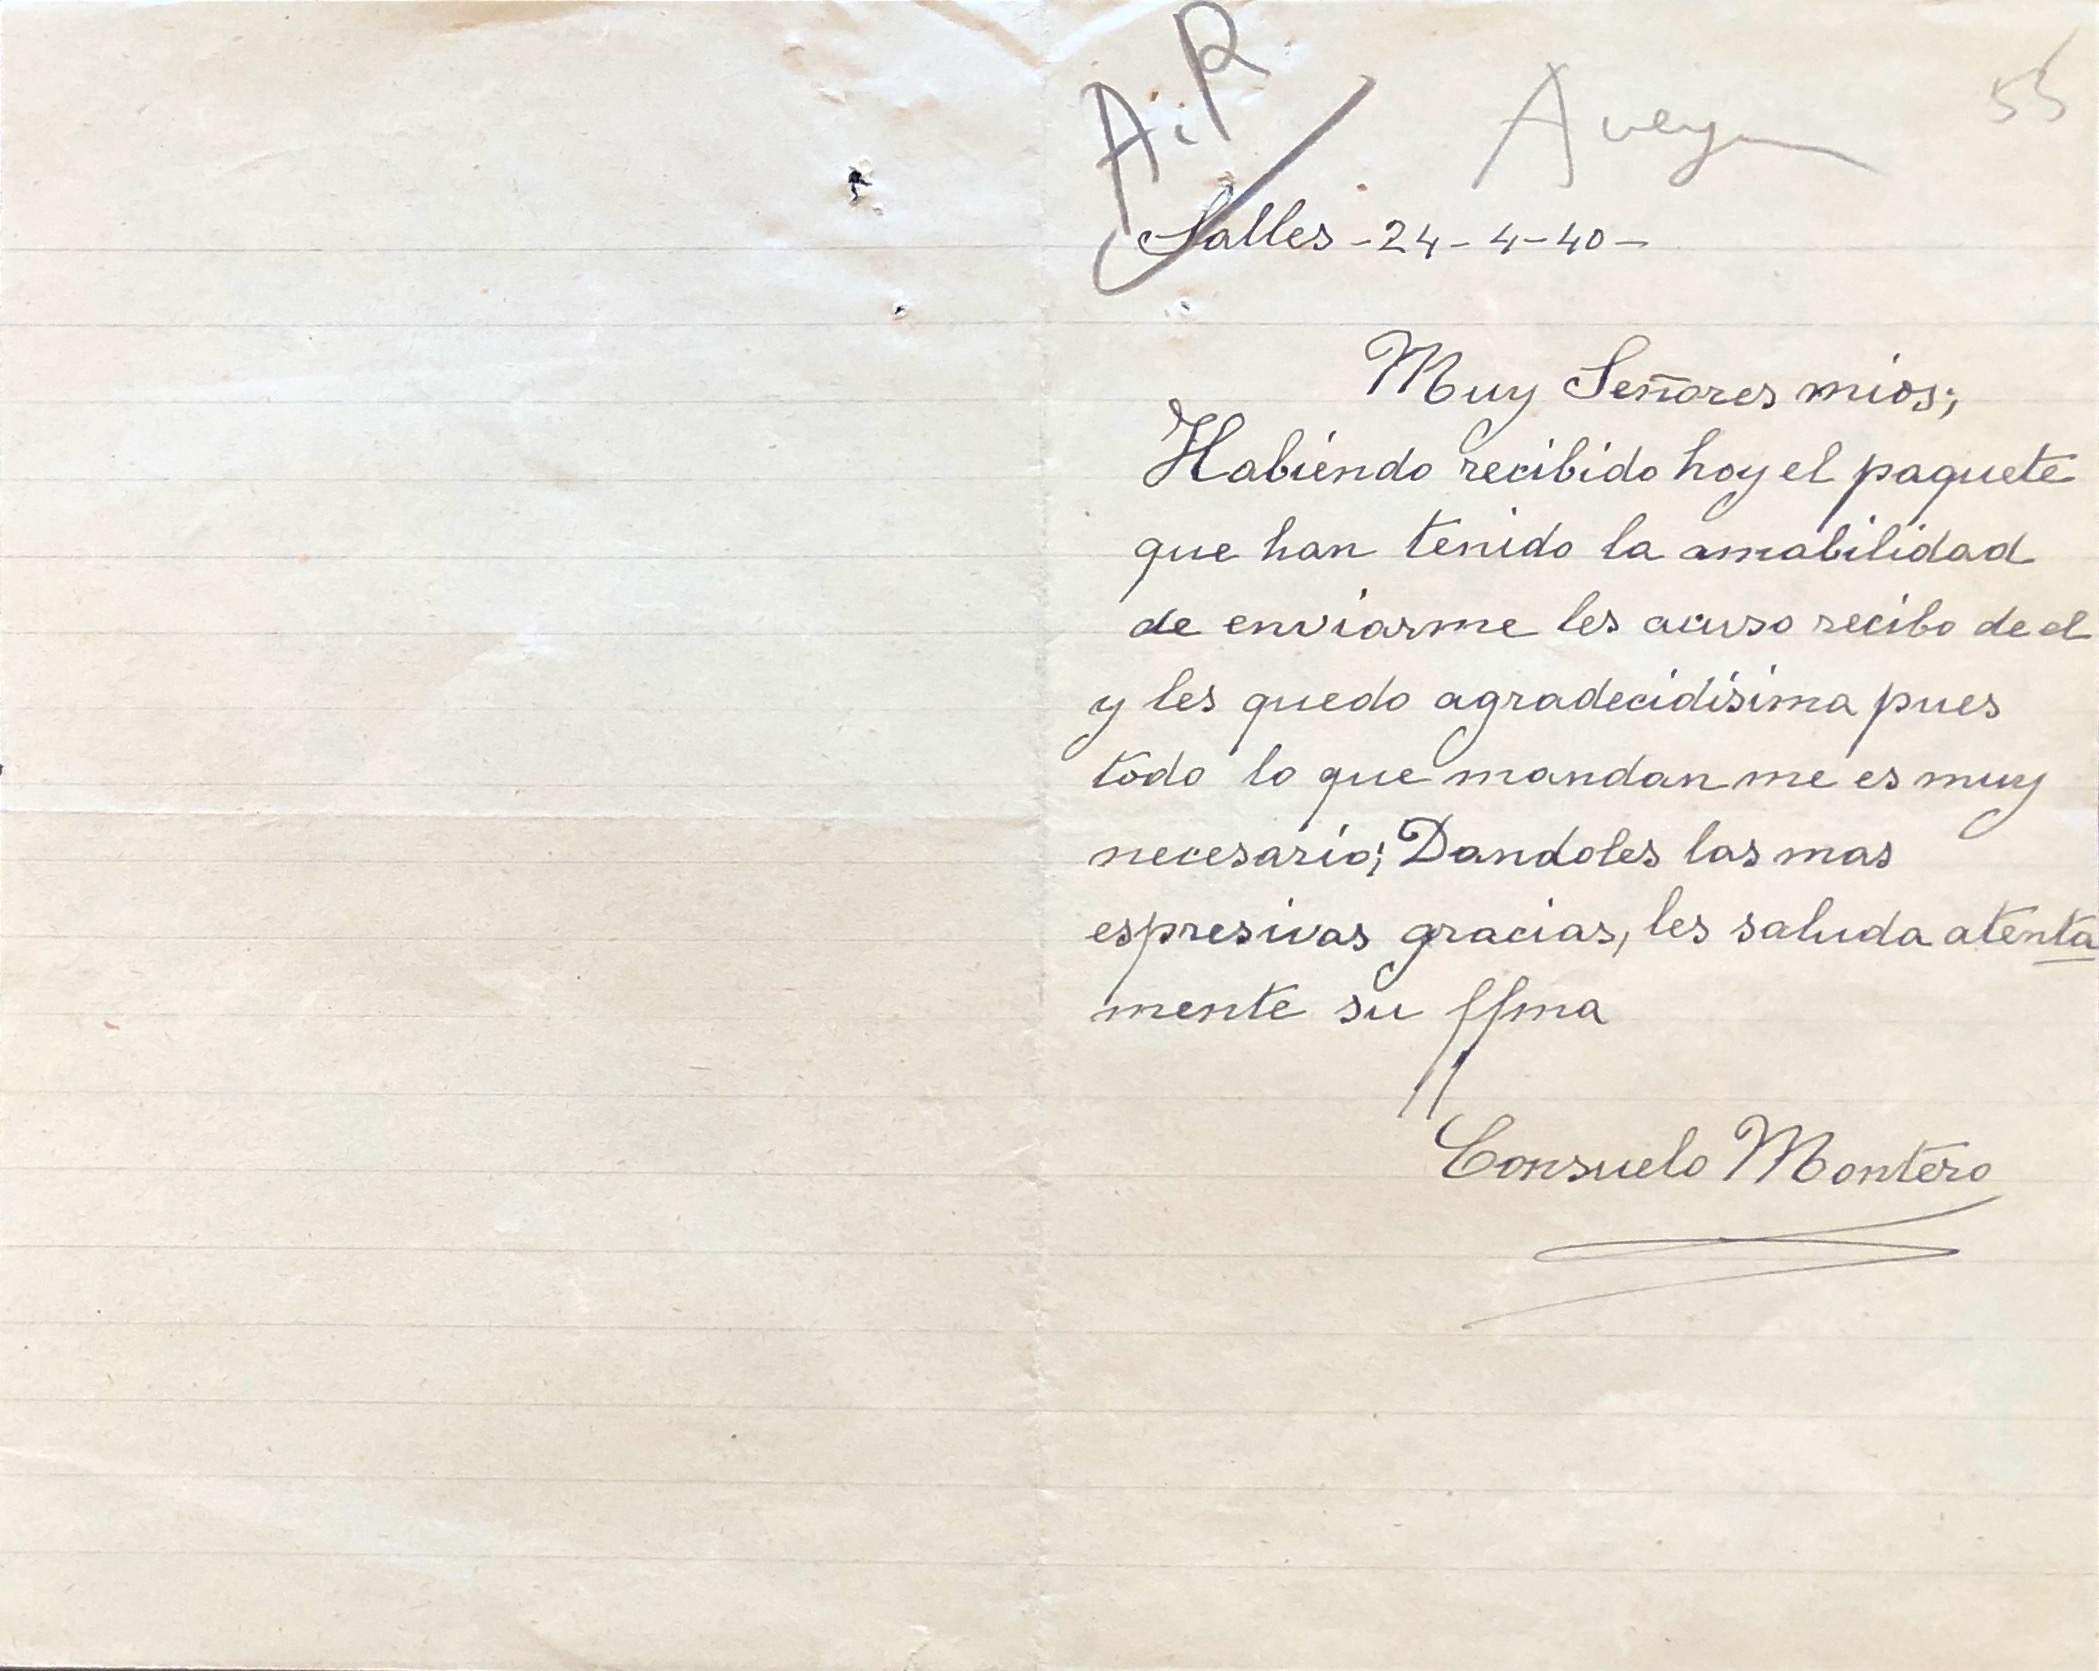 A.R
Avey
55
Salles - 24 - 4 - 40 -
Muy Señores mios;
Habiendo recibido hoy el paquete
que han tenido la amabilidad
de enviarme les acuso recibo de el
y les quedo agradecidísima pues
todo lo que mandan me es muy
necesario; Dandoles las mas
espresivas gracias, les saluda atenta
mente su ffma
Consuelo Montero